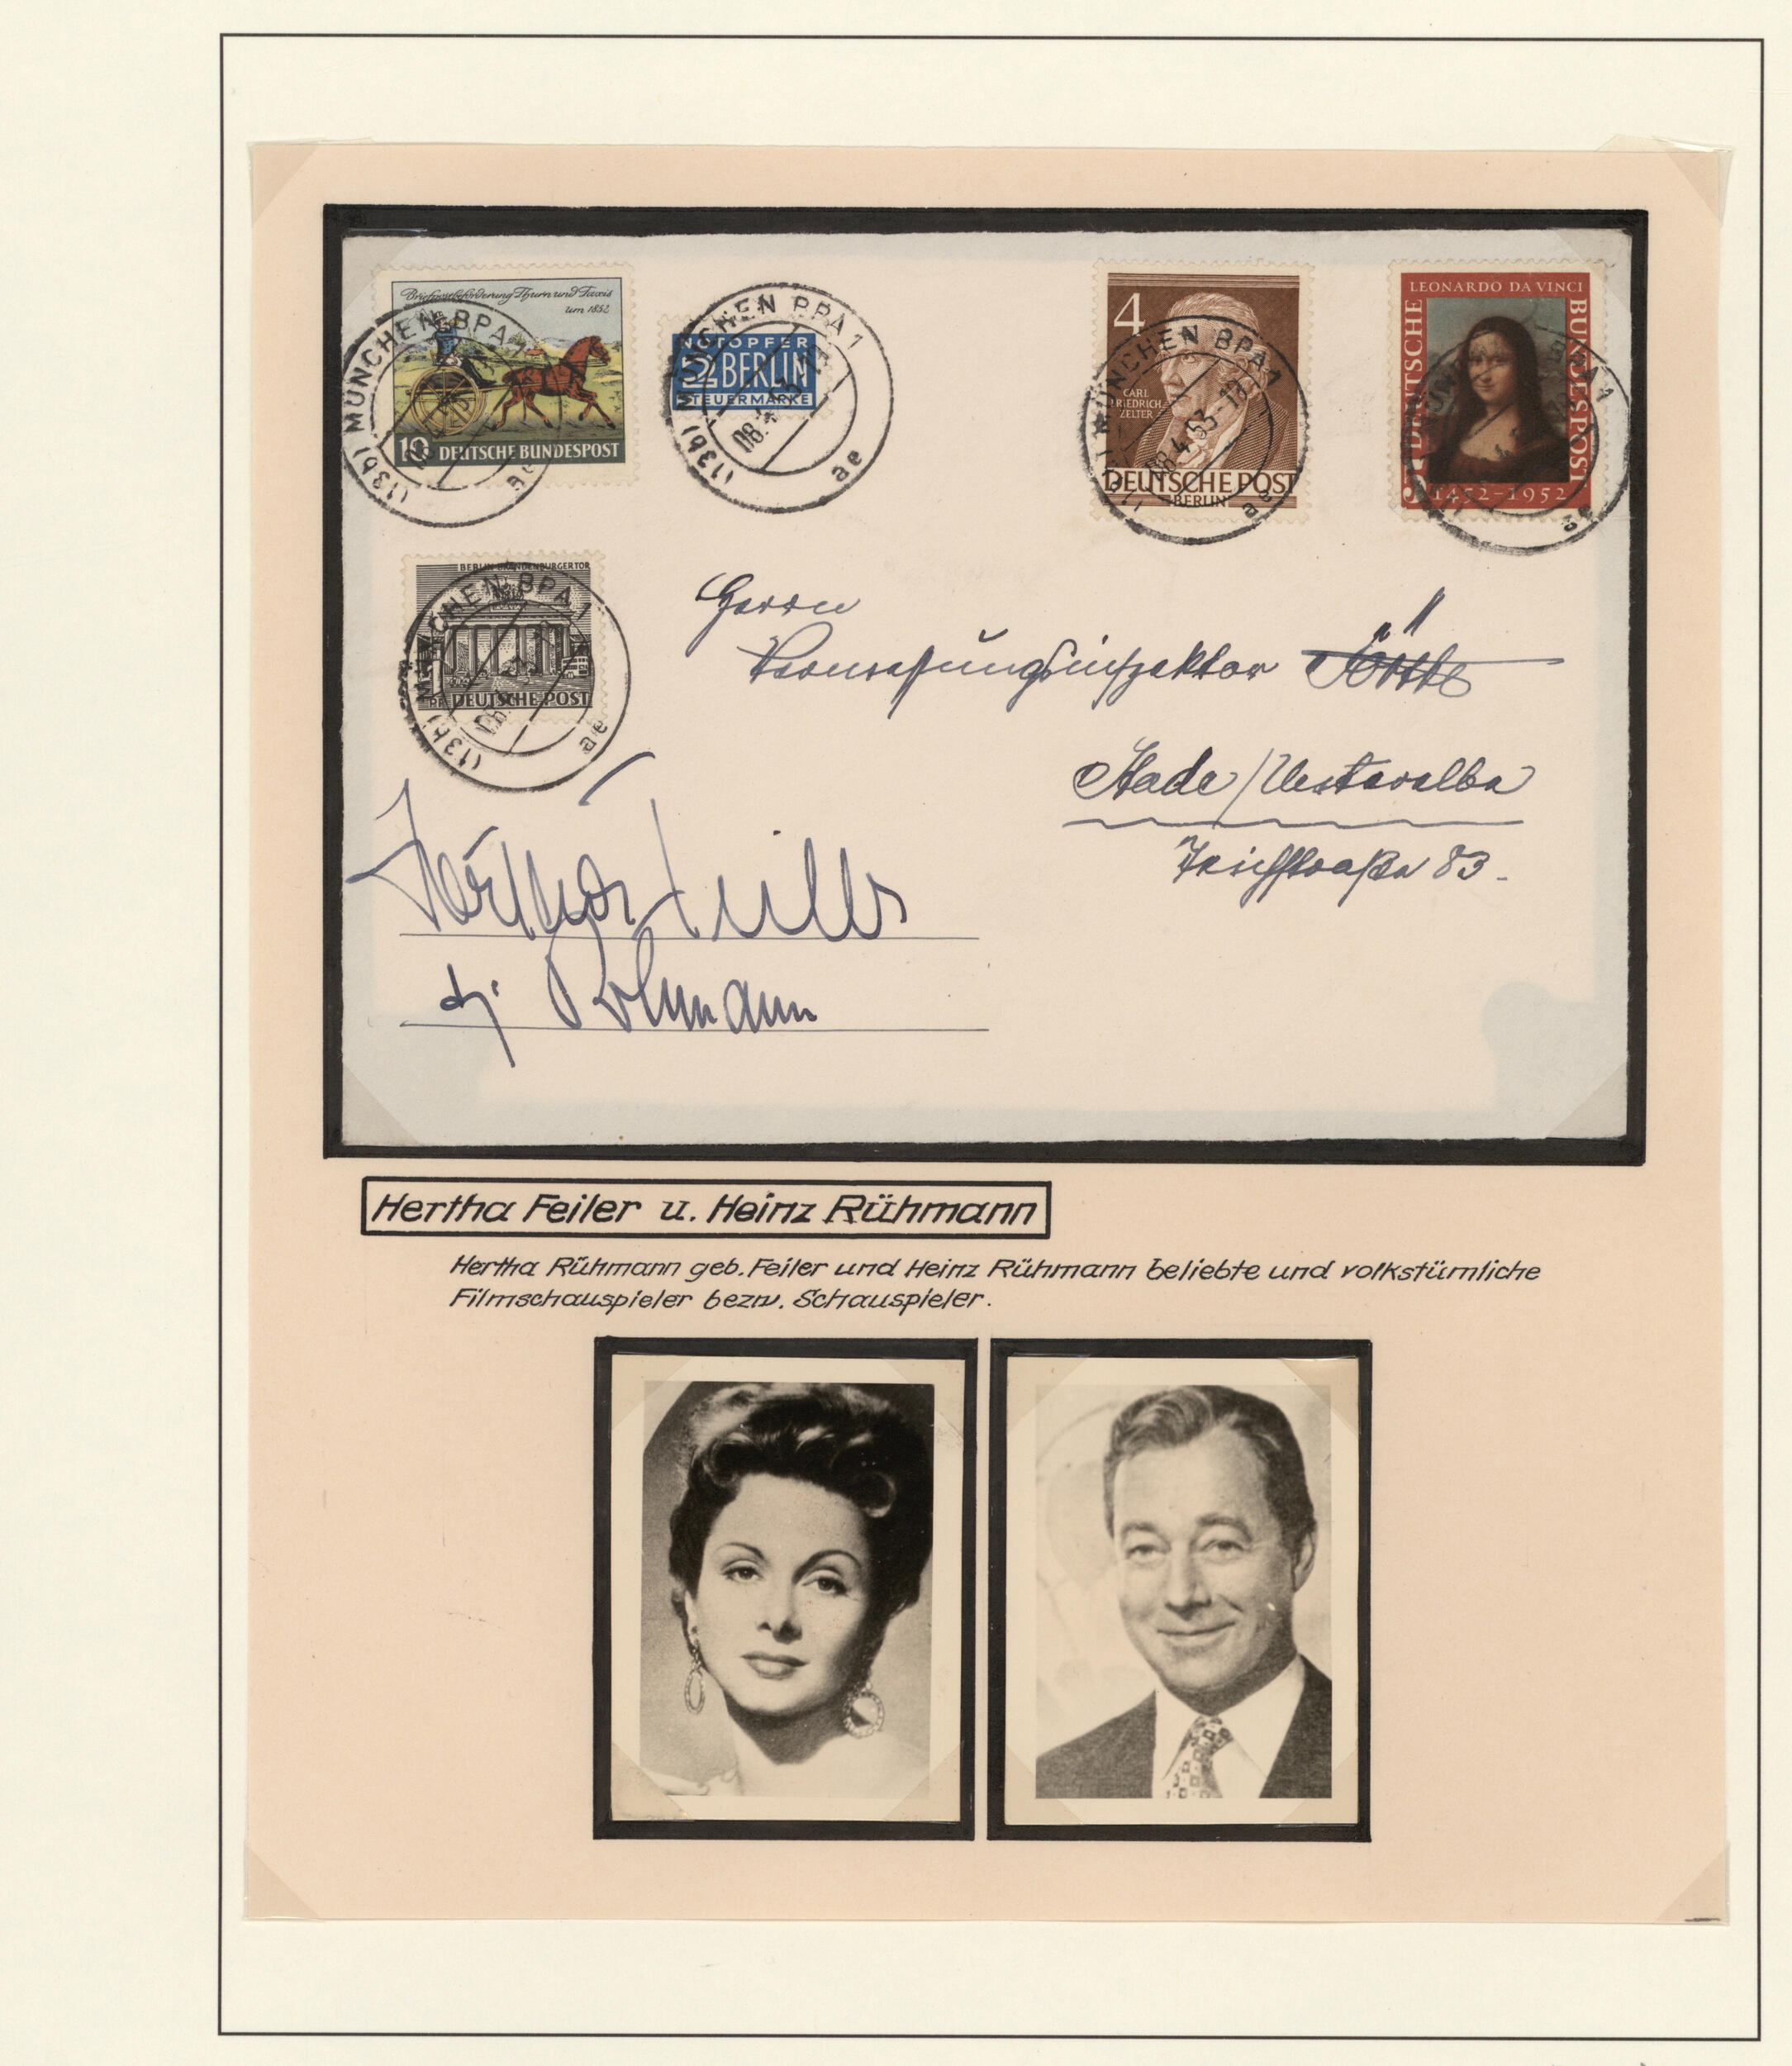 Briefpostbeförderung Thurn und Taxis
um 1852
10 DEUTSCHE BUNDESPOST
(13b) MÜNCHEN BPA 1
ae
NOTOPFER
2 BERLIN
STEUERMARKE
(13b) MÜNCHEN BPA 1
ae
4
CARL
FRIEDRICH
ZELTER
DEUTSCHE POST
BERLIN
MÜNCHEN BPA 1
08.4.53-18
ae
LEONARDO DA VINCI
DEUTSCHE
BUNDESPOST
5
1452-1952
BPA 1
ae
BERLIN BRANDENBURGER TOR
PF DEUTSCHE POST
(13b) MÜNCHEN BPA 1
ae
Herrn
Vermessungsinspektor
Stade/Niederelbe
83.
Hertha Feiler
Rühmann
Hertha Feiler u. Heinz Rühmann
Hertha Rühmann geb. Feiler und Heinz Rühmann beliebte und volkstümliche
Filmschauspieler bezw. Schauspieler.